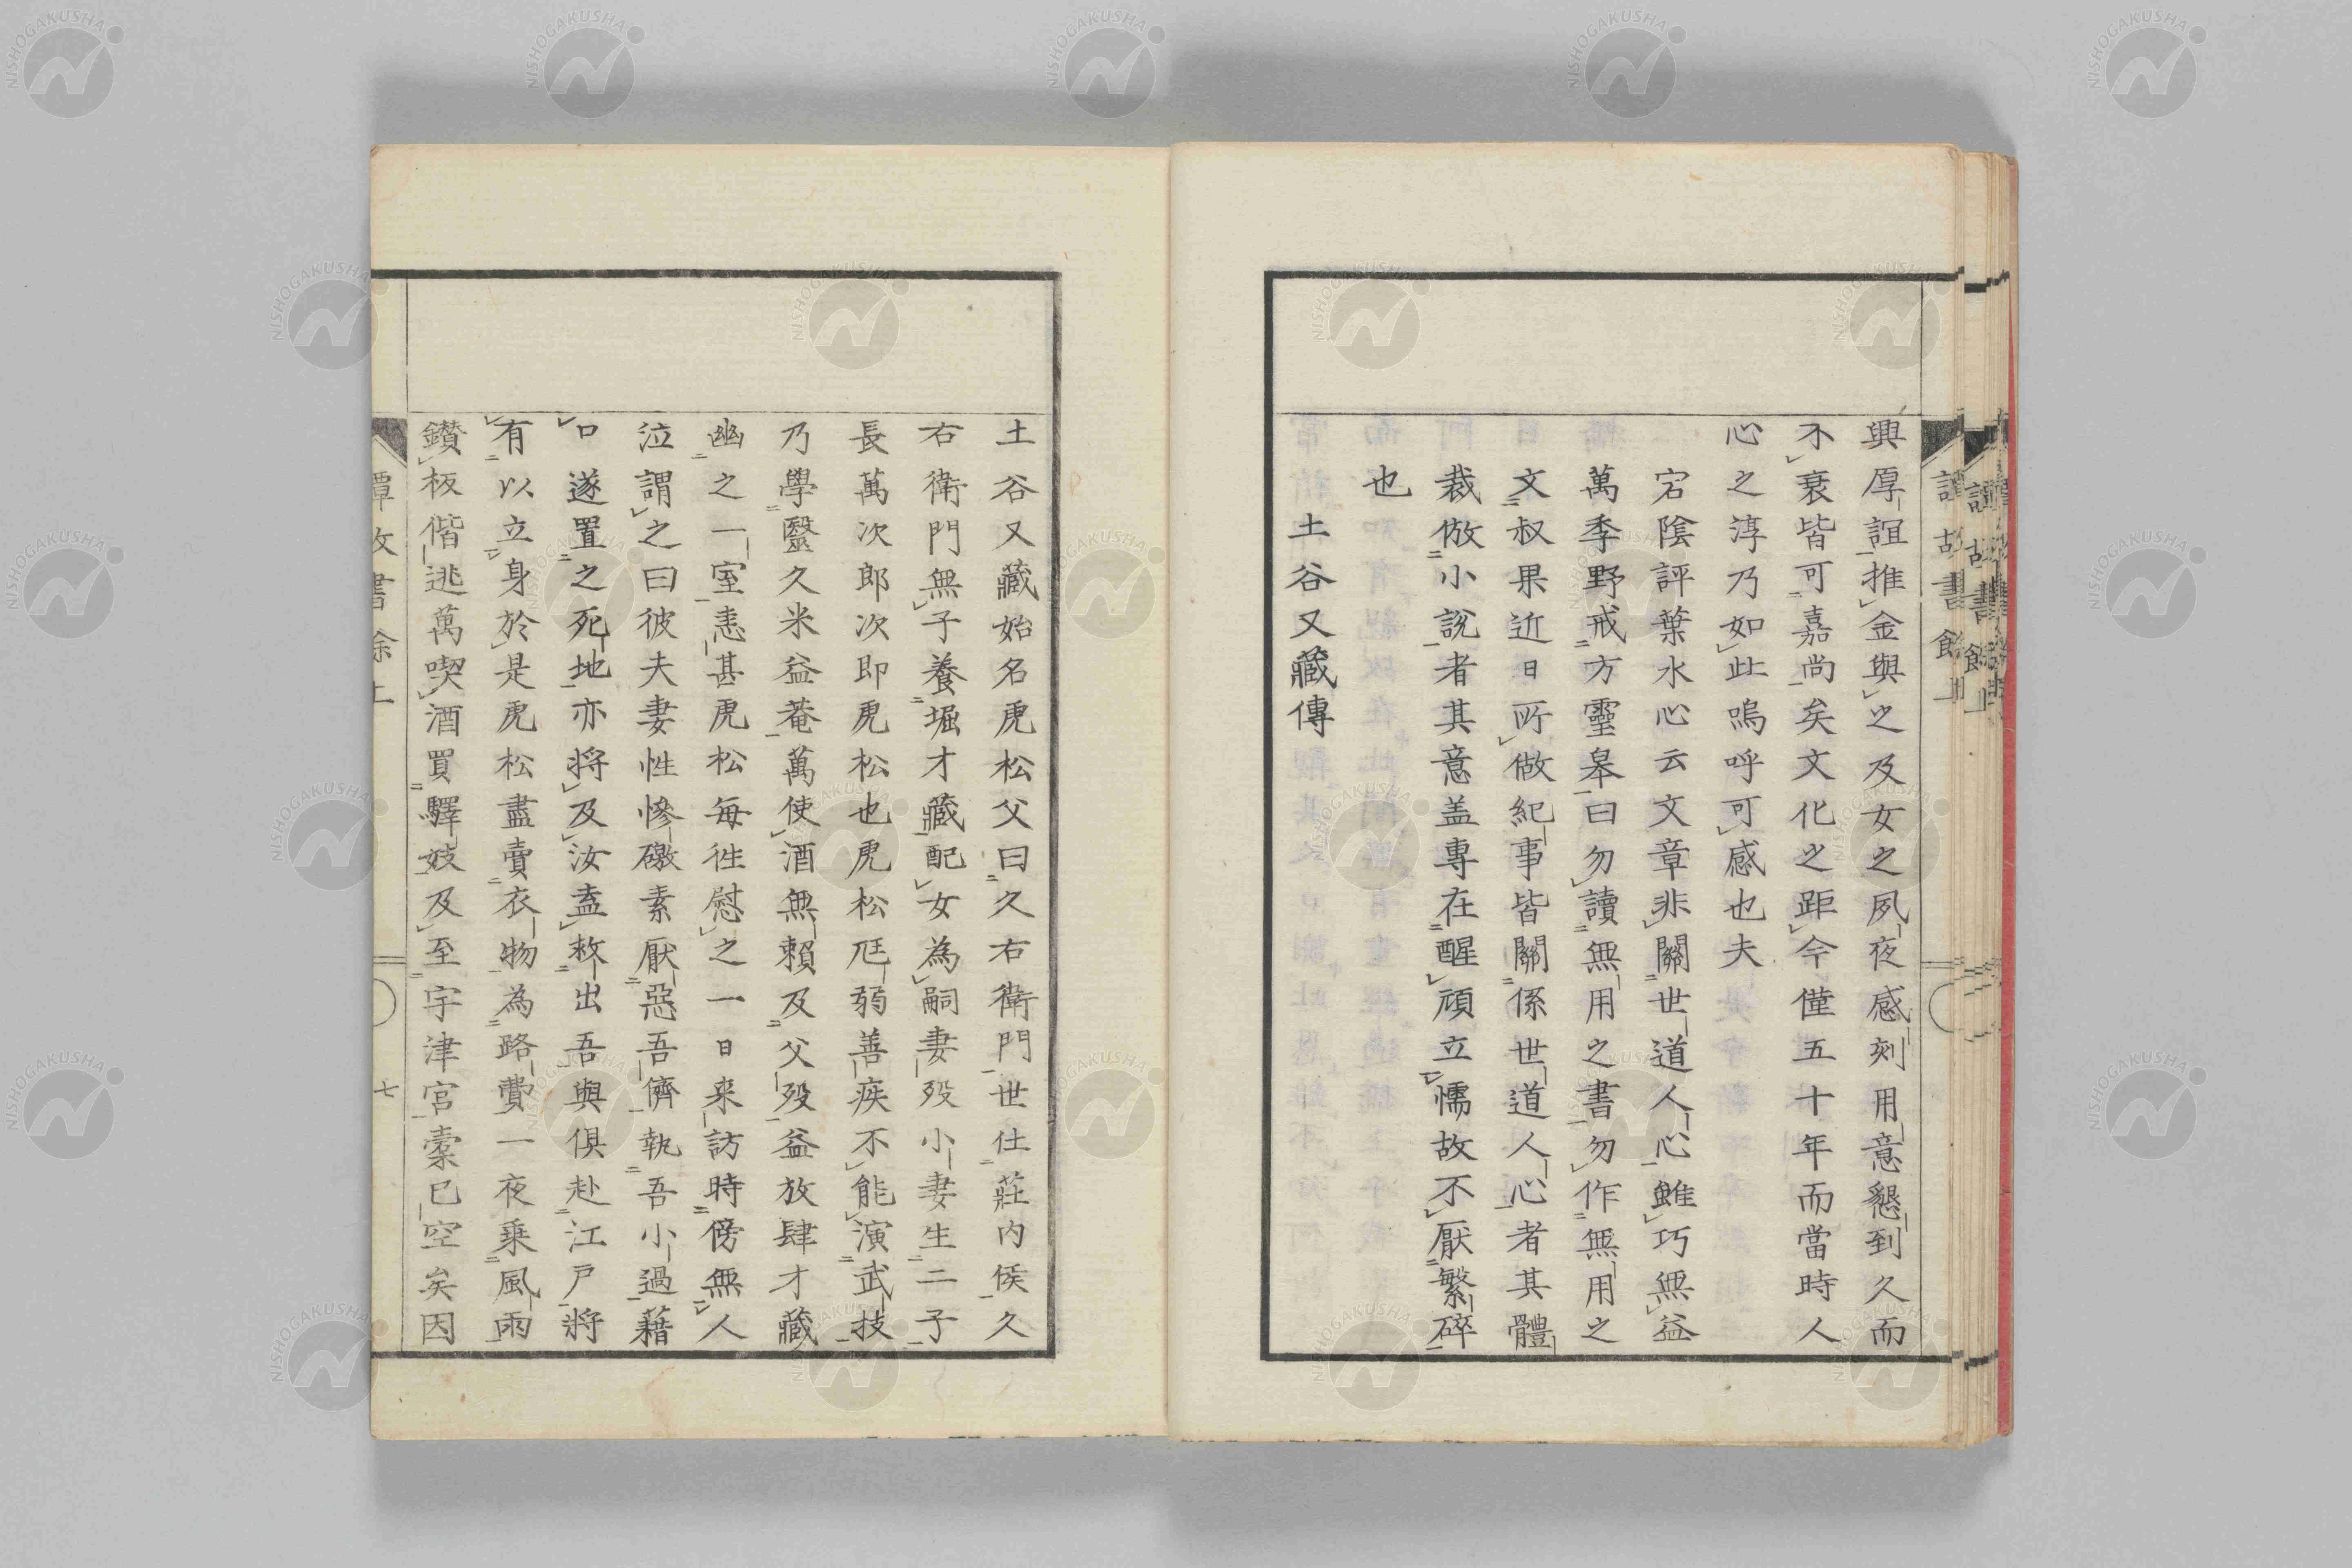 興厚誼推金與之及女之夙夜感刻用意懇到久而
不衰皆可嘉尚矣文化之距今僅五十年而當時人
心之淳乃如此嗚呼可感也夫
宕陰評葉水心云文章非關世道人心雖巧無益
萬季野戒方靈皋曰勿讀無用之書勿作無用之
文叔果近日所做紀事皆關係世道人心者其體
裁倣小說者其意盖專在醒頑立懦故不厭繁碎
也
土谷又藏傳
土谷又藏始名虎松父曰久右衛門世仕莊内侯久
右衛門無子養堀才藏配女為嗣妻歿小妻生二子
長萬次郎次即虎松也虎松尫弱善疾不能演武技
乃學毉久米益菴萬使酒無賴及父歿益放肆才藏
幽之一室恚甚虎松每徃慰之一日来訪時傍無人
泣謂之曰彼夫妻性慘礉素厭惡吾儕執吾小過藉
口遂置之死地亦將及汝盍救出吾與俱赴江戸將
有以立身於是虎松盡賣衣物為路費一夜乘風雨
鑚板偕逃萬喫酒買驛妓及至宇津宮橐已空矣因
七
NISHOGAKUSHA